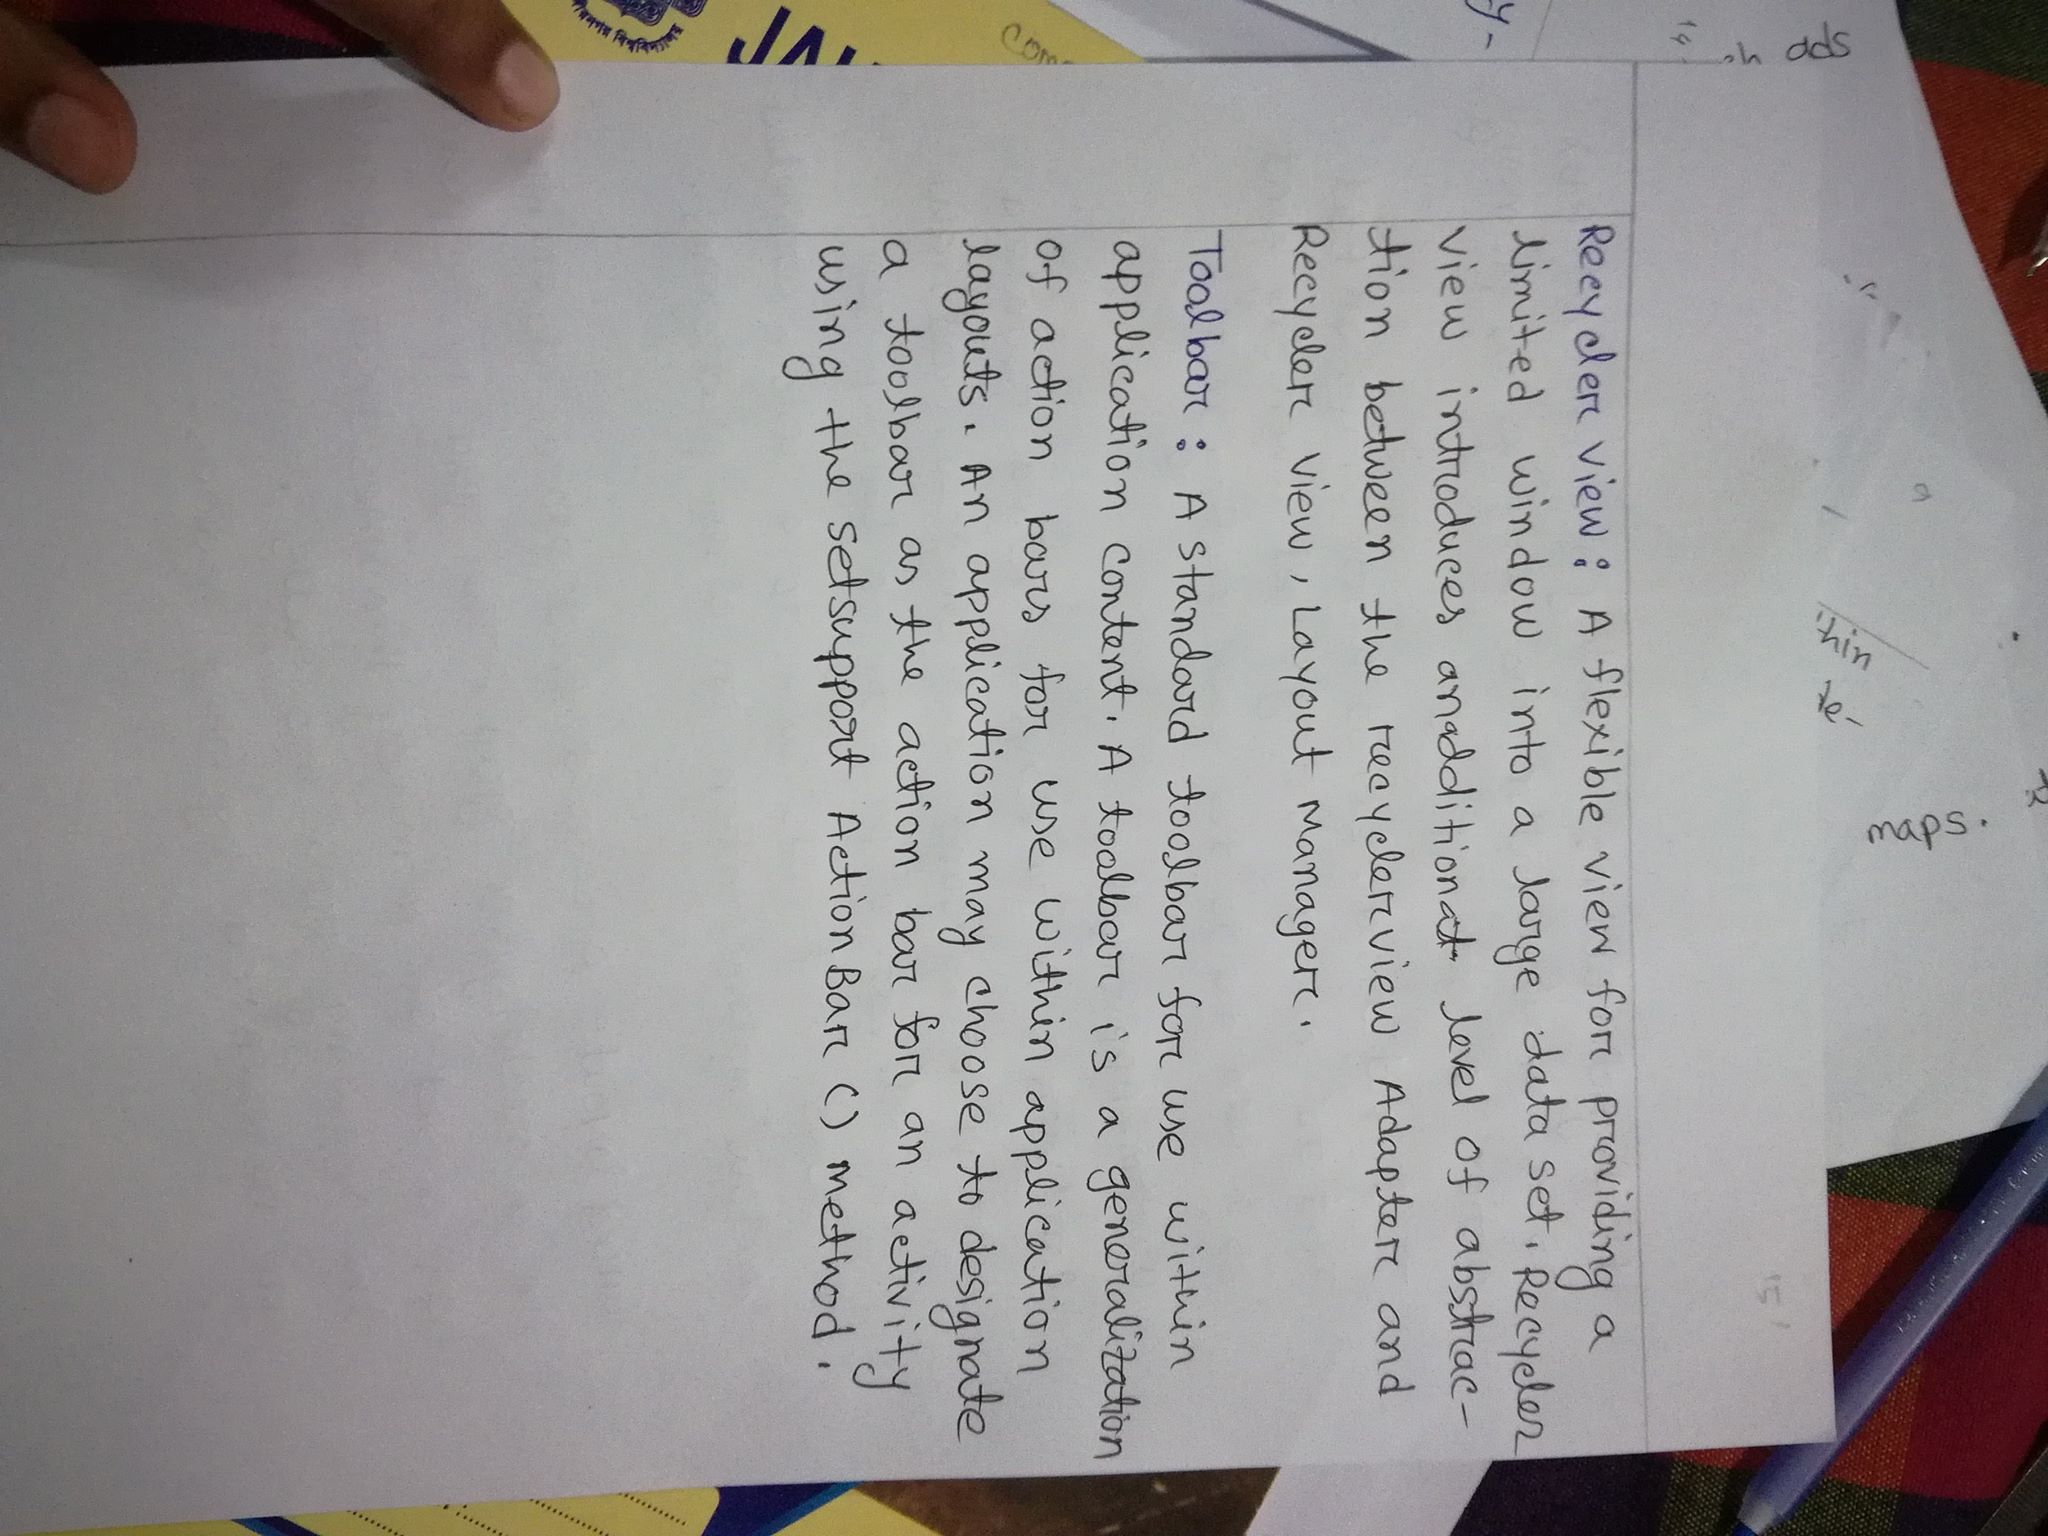 Recycler view: A flexible view for providing a
limited window into a large data set. Recycler
view introduces anadditional level of abstrac-
tion between the recyclerview Adapter and
Recycler view, Layout Manager.
Toolbar: A standard toolbar for use within
application content. A toolbar is a generalization
of action bars for use within application
layouts. An application may choose to designate
a toolbar as the action bar for an activity
using the setsupport ActionBar () method.
ads
maps.